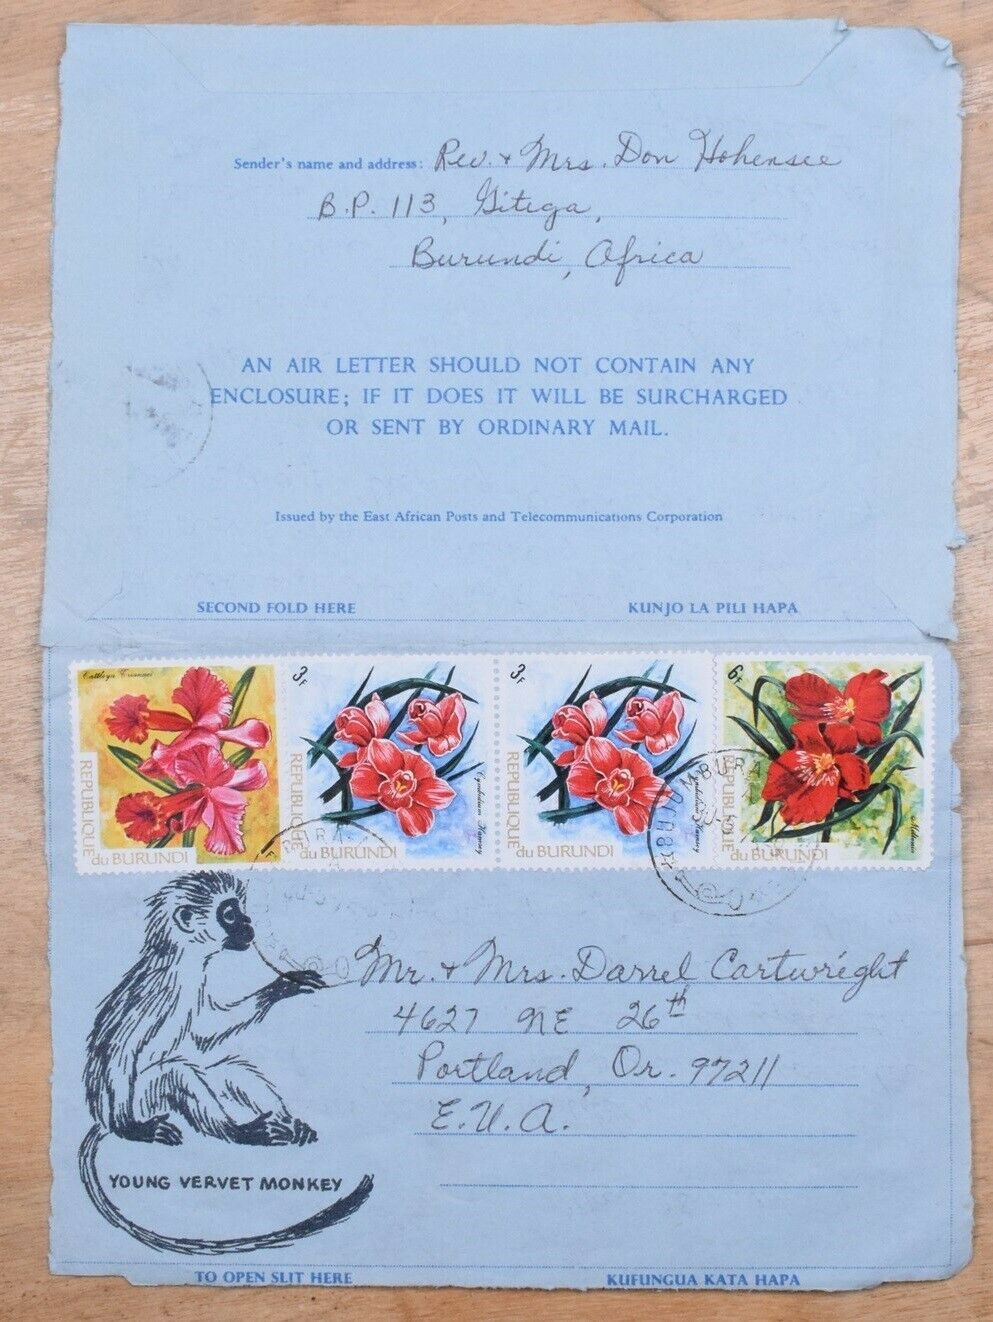 Sender's name and address: Rev. + Mrs. Don Hohensee
B.P. 113, Gitega,
Burundi, Africa
AN AIR LETTER SHOULD NOT CONTAIN ANY
ENCLOSURE; IF IT DOES IT WILL BE SURCHARGED
OR SENT BY ORDINARY MAIL.
Issued by the East African Posts and Telecommunications Corporation
SECOND FOLD HERE KUNJO LA PILI HAPA
Cattleya Trianaei
REPUBLIQUE
du BURUNDI
3F
Cymbidium Hamsey
REPUBLIQUE
du BURUNDI
3F
Cymbidium Hamsey
REPUBLIQUE
du BURUNDI
6F
REPUBLIQUE
du BURUNDI
Mr. + Mrs. Darrel Cartwright
4627 NE 26th
Portland, Or. 97211
E.U.A.
YOUNG VERVET MONKEY
TO OPEN SLIT HERE KUFUNGUA KATA HAPA